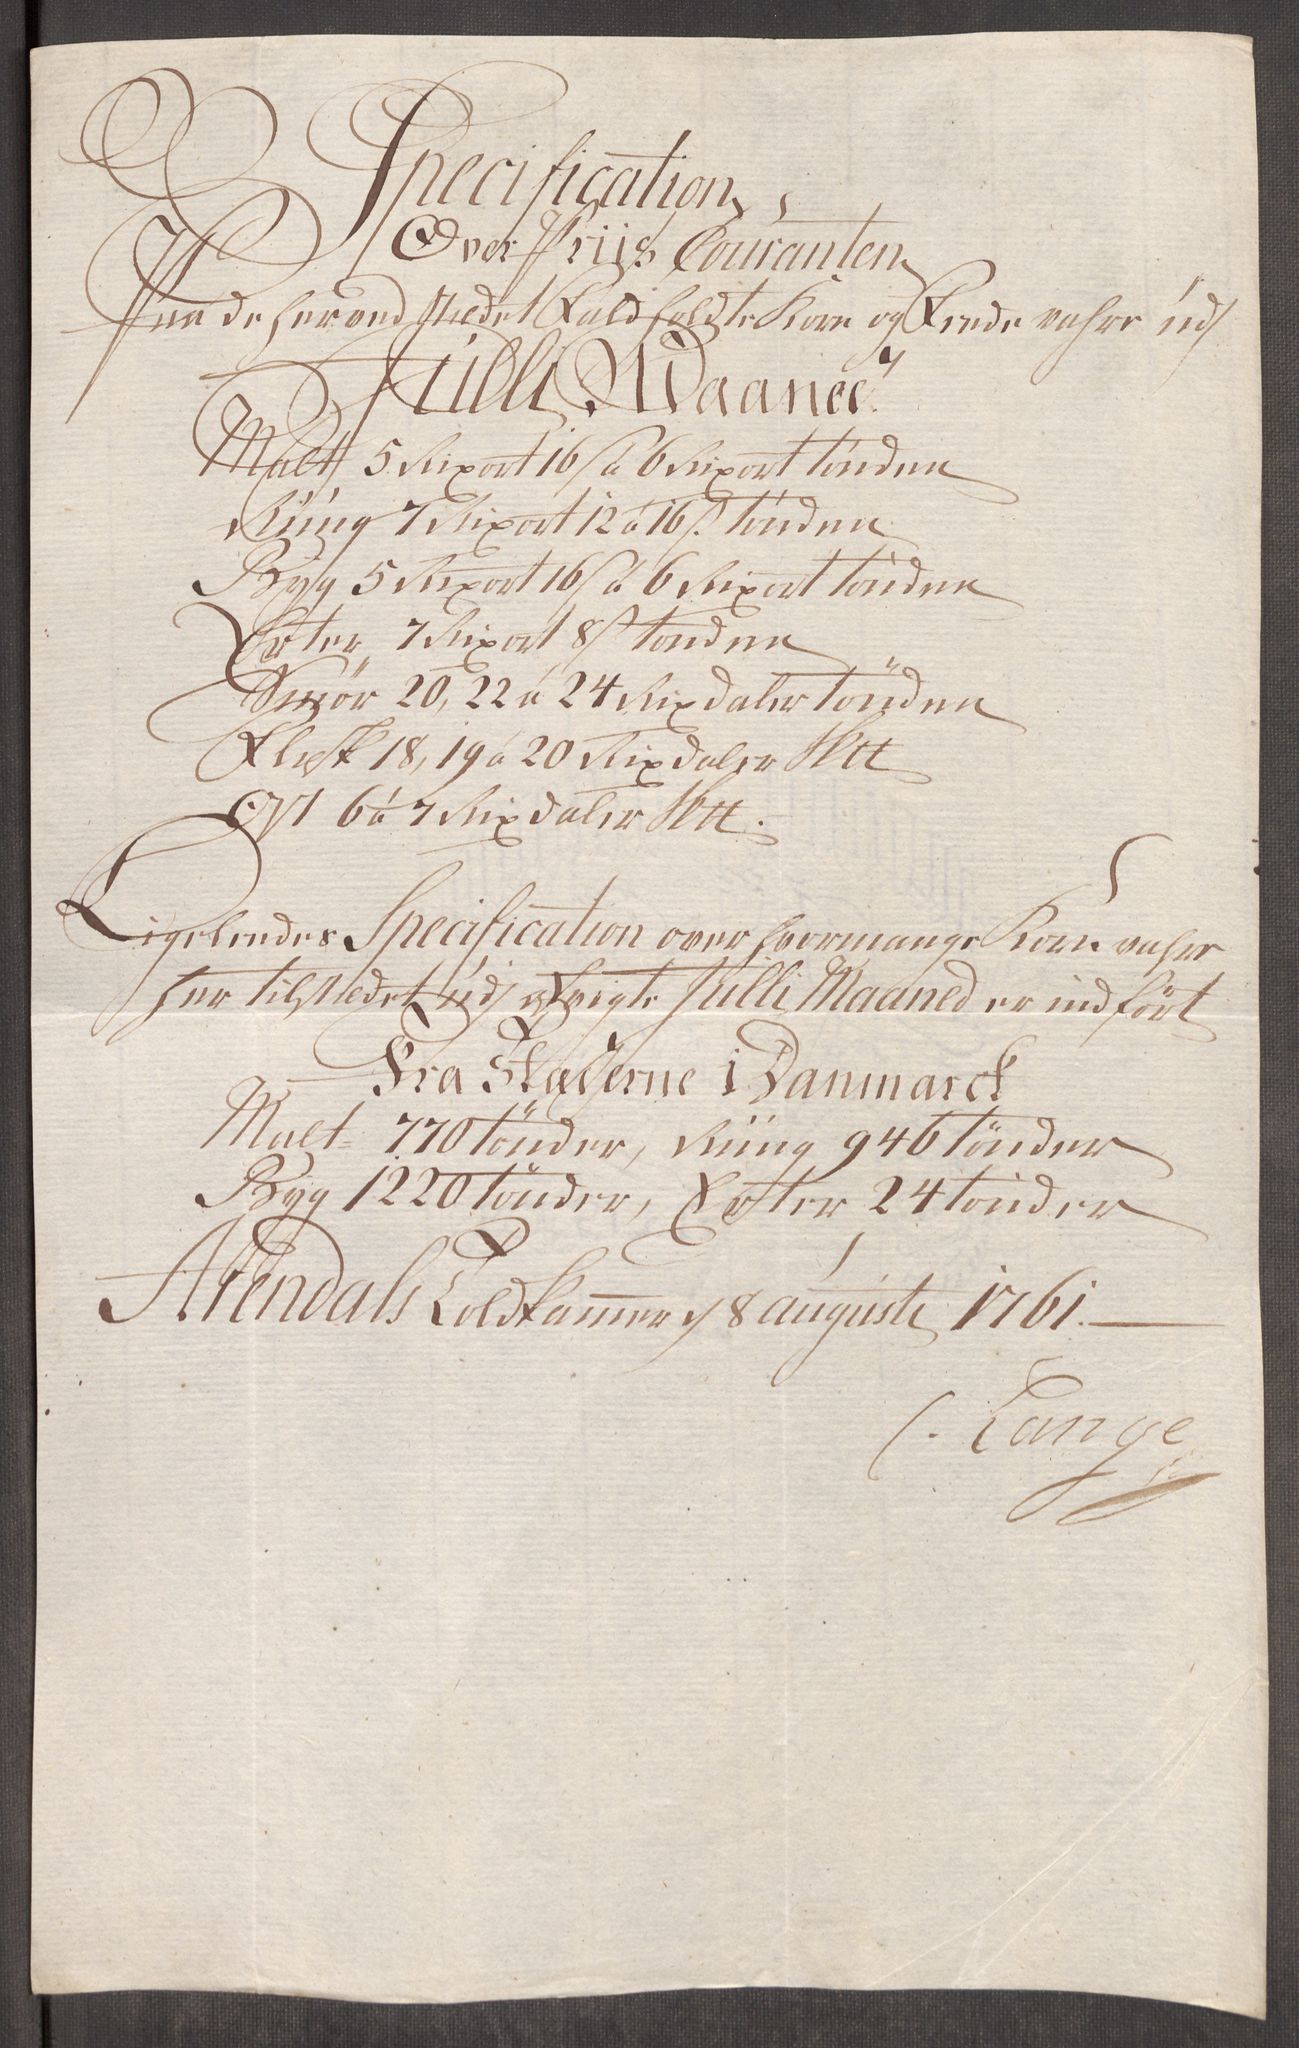 Specification
Over Priis Couranten
Paa de her ved stædet fald holdte Korn og Fede vahre udj
Julli Maanet
Malt 5 Rixort 16 s a 6 Rixort tönden
Rüüg 7 Rixort 12 a 16 s. tönden
Byg 5 Rixort 16 s a 6 Rixort tönden
Erter 7 Rixort 8 s tönden
Smör 20, 22 a 24 Rixdaler tönden
Flesk 18, 19 a 20 Rixdaler
Ost 6 a 7 Rixdaler
Ligeleedes Specification over hvormange Korn vahre
her til stædet udj afvigte Julli Maaned er indført
Fra Stæderne i Danmarck
Malt 770 tönder, Rüüg 946 tönder
Byg 1220 tönder, Erter 24 tönder
Arendals Toldkammer d 8 augusti 1761.
C. Lange